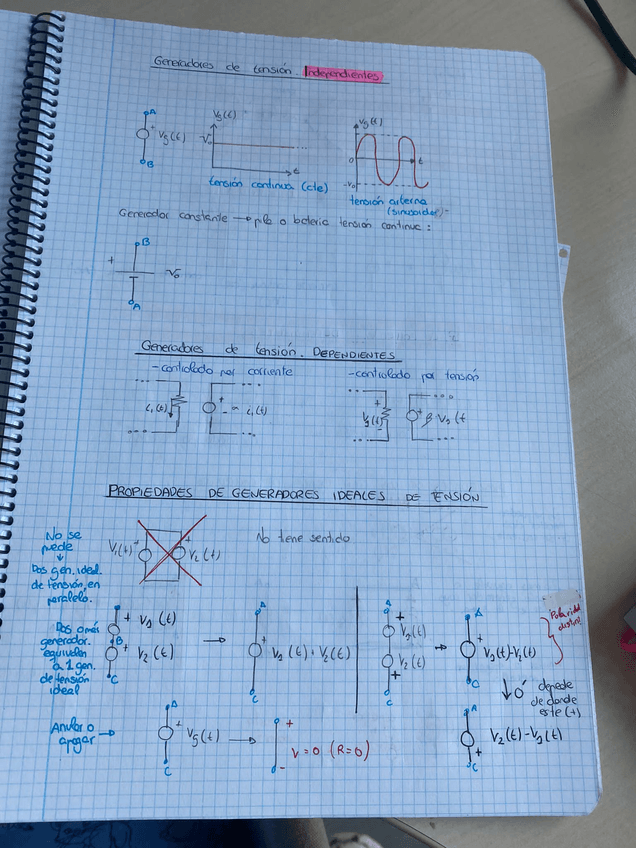 Generadores de tensión. Independientes.
A
+
Vg(t)
B
Vg(t)
V₀
t
tensión continua (cte)
Vg(t)
0
t
-V₀
tensión alterna
(sinusoidal)
Generador constante → pila o batería tensión continua:
B
+
V₀
A
Generadores de tensión. DEPENDIENTES
-controlado por corriente
-controlado por tensión
i₁(t)
+
-
∝ i₁(t)
+
V₁(t)
-
+
β V₁(t
PROPIEDADES DE GENERADORES IDEALES DE TENSIÓN
No se
puede
↓
Dos gen. ideal.
de tensión, en
paralelo.
V₁(t)
+
+
V₂(t)
No tiene sentido
Dos o más
generador.
equivalen
a 1 gen.
de tensión
ideal
+ V₁(t)
B
+ V₂(t)
C
→
A
+
V₁(t) + V₂(t)
C
A
+
V₁(t)
V₂(t)
+
C
→
A
+
V₁(t)-V₂(t)
C
Polaridad
↓ ó
depede
de donde
este (+)
A
V₂(t)-V₁(t)
+
C
Anular o
apagar →
A
+
Vg(t)
C
→
+
-
V=0 (R=0)